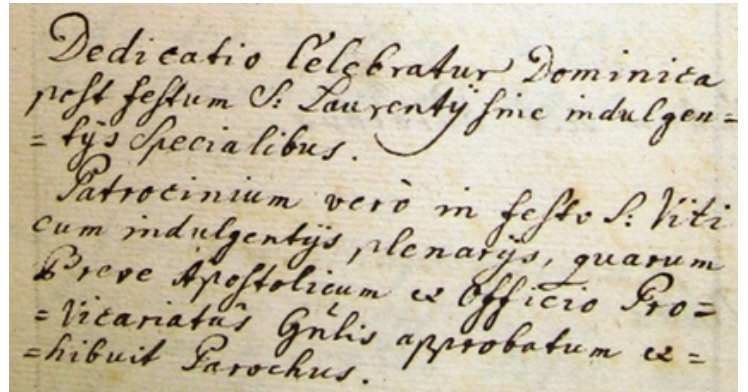 Dedicatio Celebratur Dominica
post festum S: Laurentÿ sine indulgen=
=tÿs Specialibus.
Patrocinium verò in festo S: Viti
cum indulgentÿs plenarÿs, quarum
Breve Apostolicum ex Officio Pro=
=Vicariatûs Gn̄lis approbatum ex=
=hibuit Parochus.